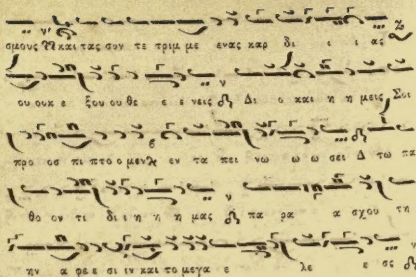 σμους και τας συν τε τριμ με ενας καρ δι ι ι ας
ου ουκ ε ξου ου θε ε ε νεις Δι ο και η η μεις Σοι
προ οσ πι πτο ο μεν εν τα πει νω ω ω σει Δ τω πα
θο ον τι δι η η η μας πα ρα α σχου τη
ην α φε ε σι ιν και το μεγα ε λε ε ος